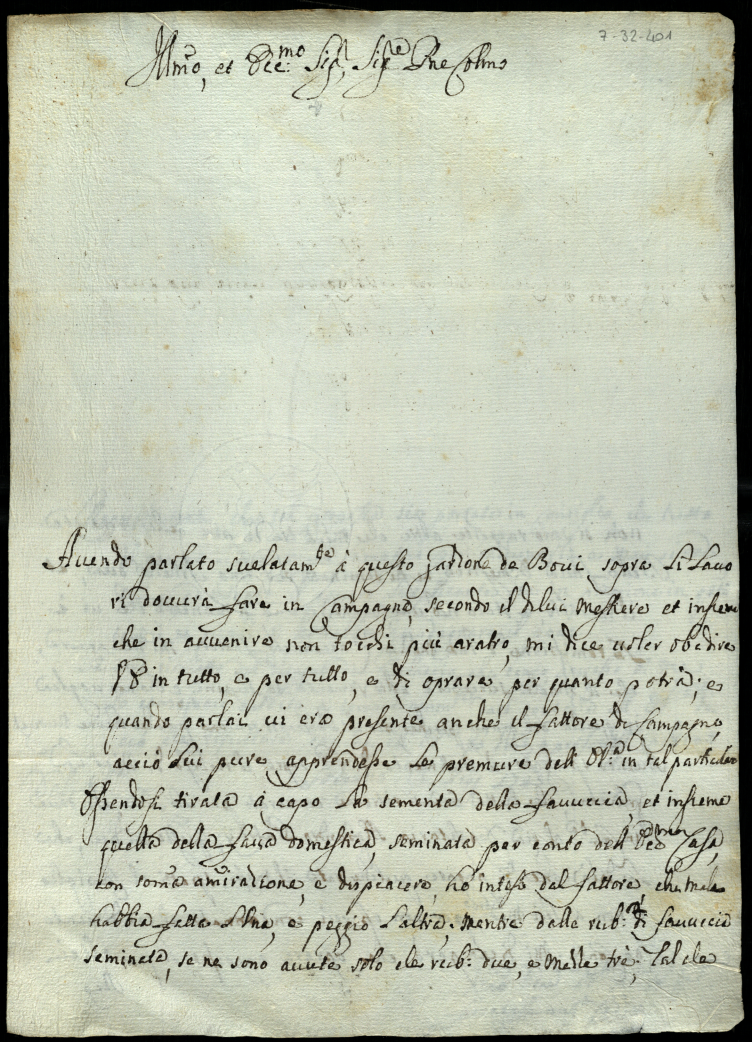 7-32-401
Illmo, et Ecc:mo Sigr, Sigre Pne Colmo
Avendo parlato svelatamte à questo Garzone de Bovi sopra li Lavo
ri dovverà fare in Campagna, secondo il di lui mestiere et insieme
che in avvenire non tocchi più aratro, mi dice voler obedire
VE in tutto, e per tutto, e di oprare per quanto potrà; e
quando parlai vi era presente anche il fattore di Campagna,
acciò lui pure apprendesse le premure dell' in tal particulare
Essendosi tirata à capo la sementa della favuccia, et insieme
quella della fava domestica, seminata per conto dell' Ecc:ma Casa,
con soma amirazione, e dispiacere, ho inteso dal fattore, che male
habbia fatta l'una, e peggio l'altra, mentre dalle rub: di favuccia
seminata, se ne sono avute solo che rub: due, e mezze trè, tal che